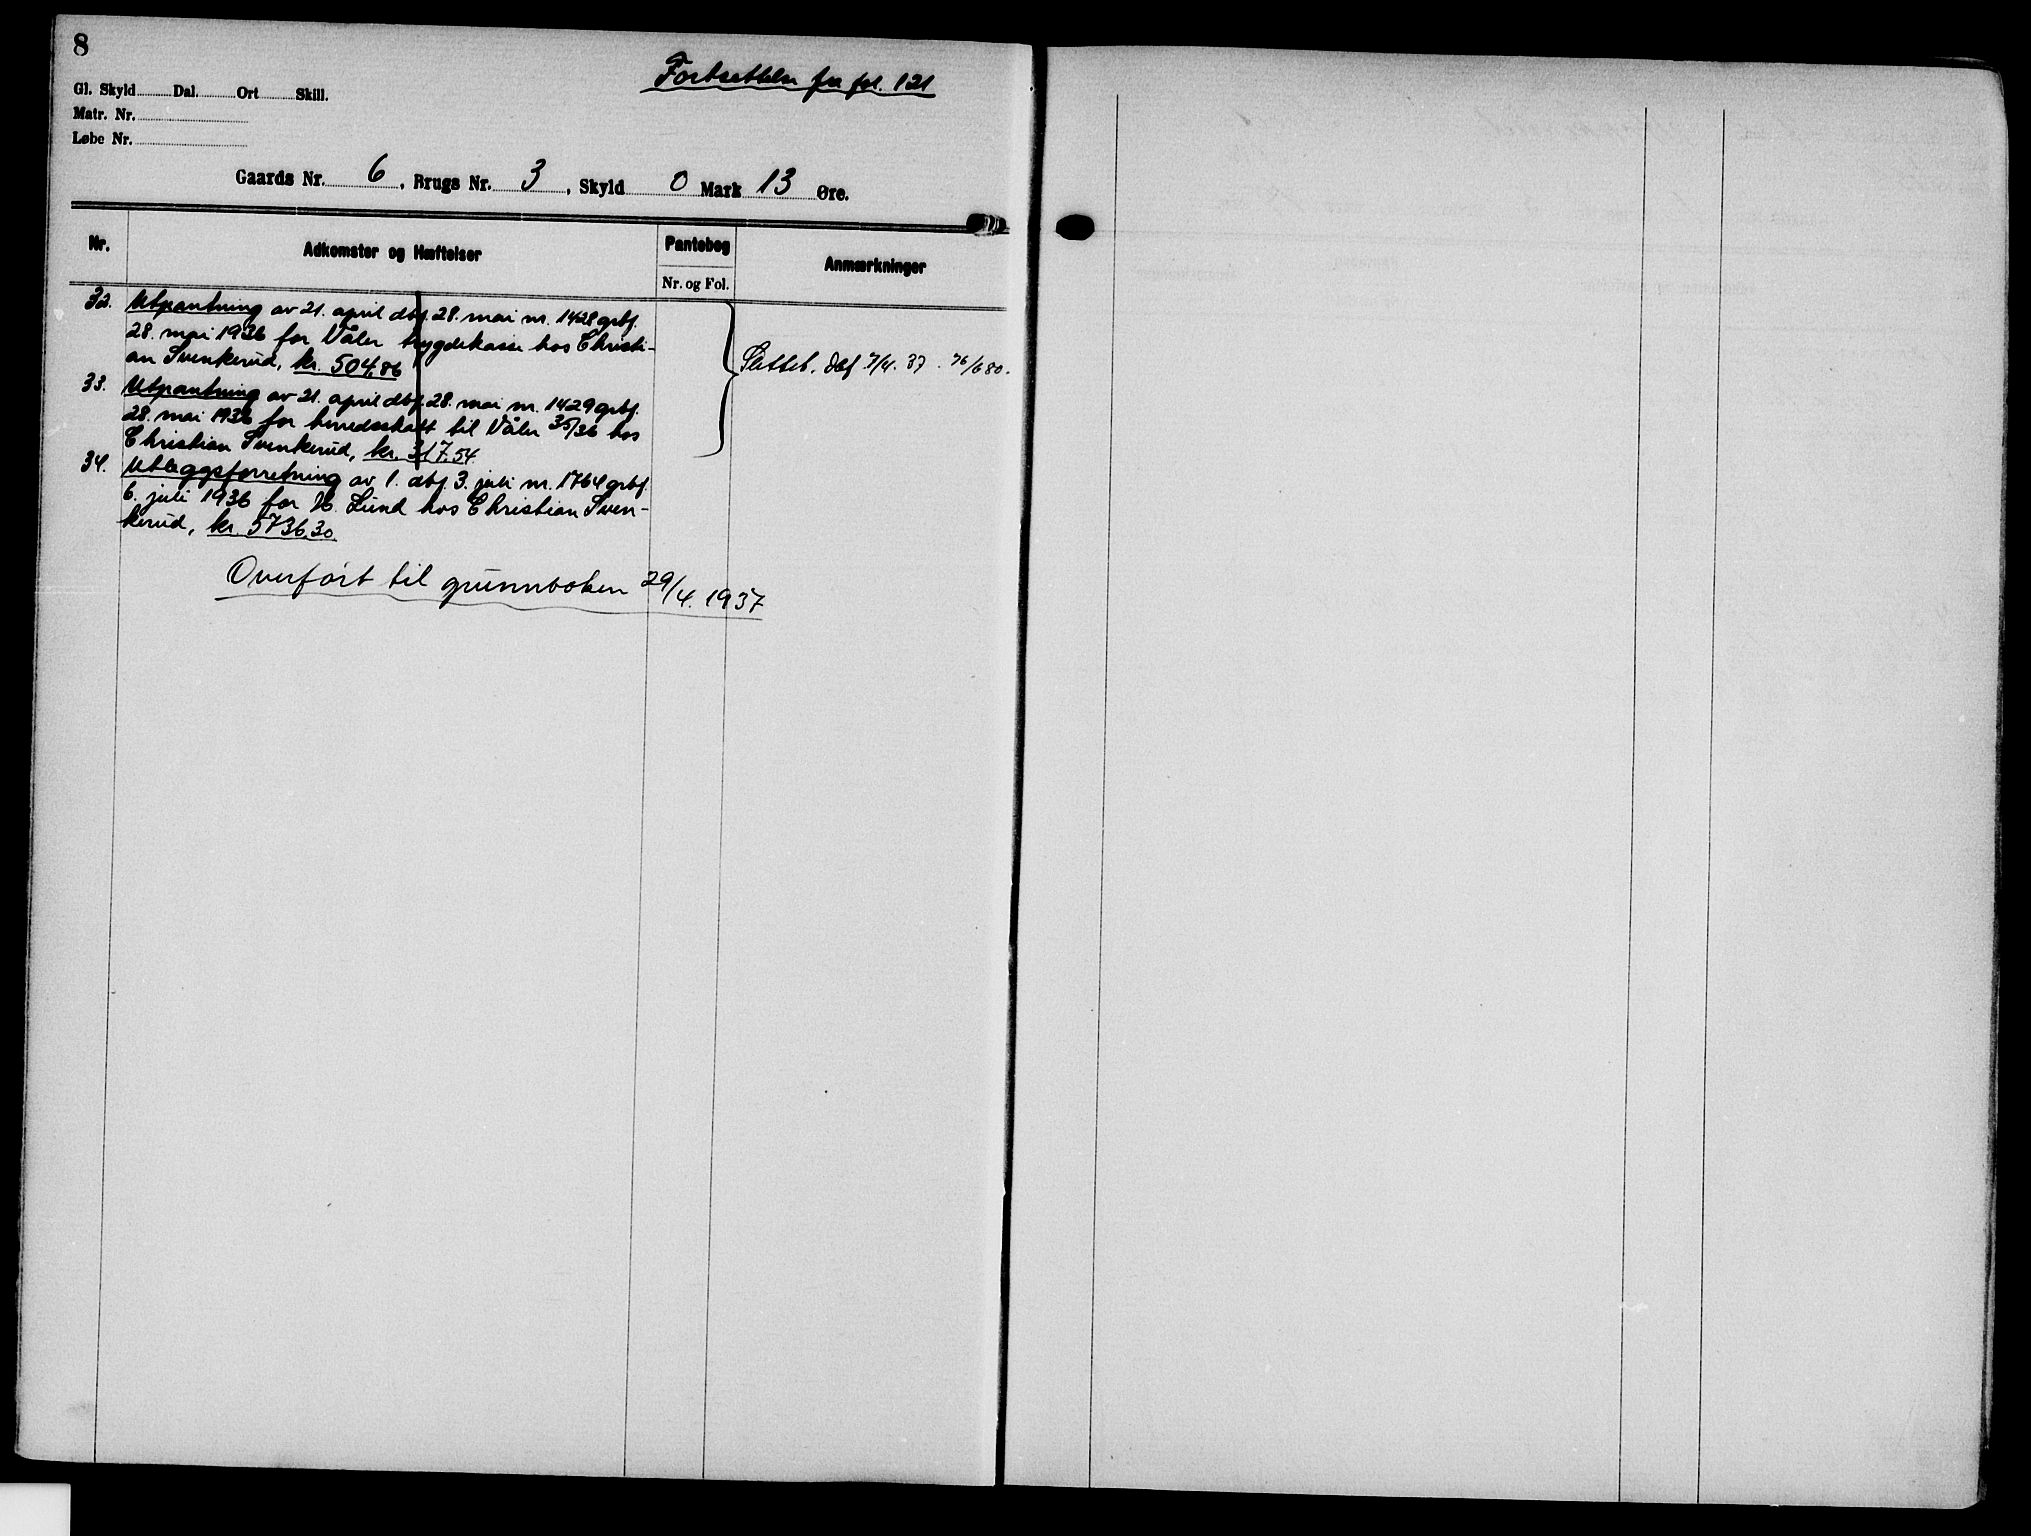 8
Fortsettelse fra fol. 121
Gl. Skyld Dal. Ort Skill.
Matr. Nr.
Løbe Nr.
Gaards Nr. 6, Brugs Nr. 3, Skyld 0 Mark 13 Øre.
Nr. Adkomster og Hæftelser Pantebog Anmærkninger
Nr. og Fol.
32. Utpantning av 21. april dbf. 28. mai nr. 1428 grbf.
28. mai 1936 for Våler trygdekasse hos Christi-
an Svenkerud, kr. 504,86
Slettet. dbf 7/4. 37. 76/680.
33. Utpantning av 21. april dbf. 28. mai nr. 1429 grbf.
28. mai 1936 for herredsskatt til Våler 35/36 hos
Christian Svenkerud, kr. 317.54
34. Utleggsforretning av 1. dbf. 3. juli nr. 1764 grbf.
6. juli 1936 for H. Lund hos Christian Sven-
kerud, kr. 5736.30.
Overført til grunnboken 29/4. 1937